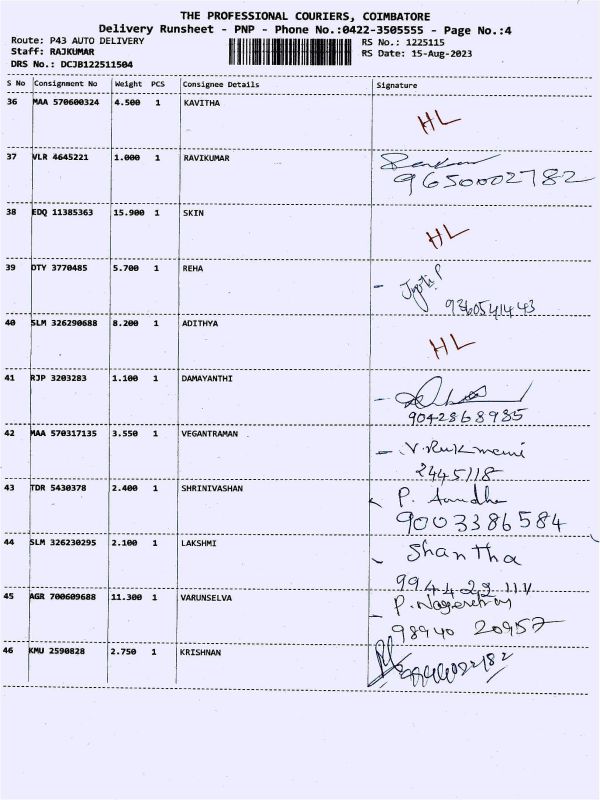 THE PROFESSIONAL COURIERS, COIMBATORE
Delivery Runsheet - PNP - Phone No.:0422-3505555 - Page No.:4
Route: P43 AUTO DELIVERY RS No.: 1225115
Staff: RAJKUMAR RS Date: 15-Aug-2023
DRS No.: DCJB122511504
S No Consignment No Weight PCS Consignee Details Signature
36 MAA 570600324 4.500 1 KAVITHA HL
37 VLR 4645221 1.000 1 RAVIKUMAR
9650002782
38 EDQ 11385363 15.900 1 SKIN HL
39 OTY 3770485 5.700 1 REHA
9360541443
40 SLM 326290688 8.200 1 ADITHYA HL
41 RJP 3203283 1.100 1 DAMAYANTHI
9042868985
42 MAA 570317135 3.550 1 VEGANTRAMAN V.Rukmani
2445118
43 TDR 5430378 2.400 1 SHRINIVASHAN P. Aandha
9003386584
44 SLM 326230295 2.100 1 LAKSHMI Shantha
45 AGR 700609688 11.300 1 VARUNSELVA
98940 20957
46 KMU 2590828 2.750 1 KRISHNAN